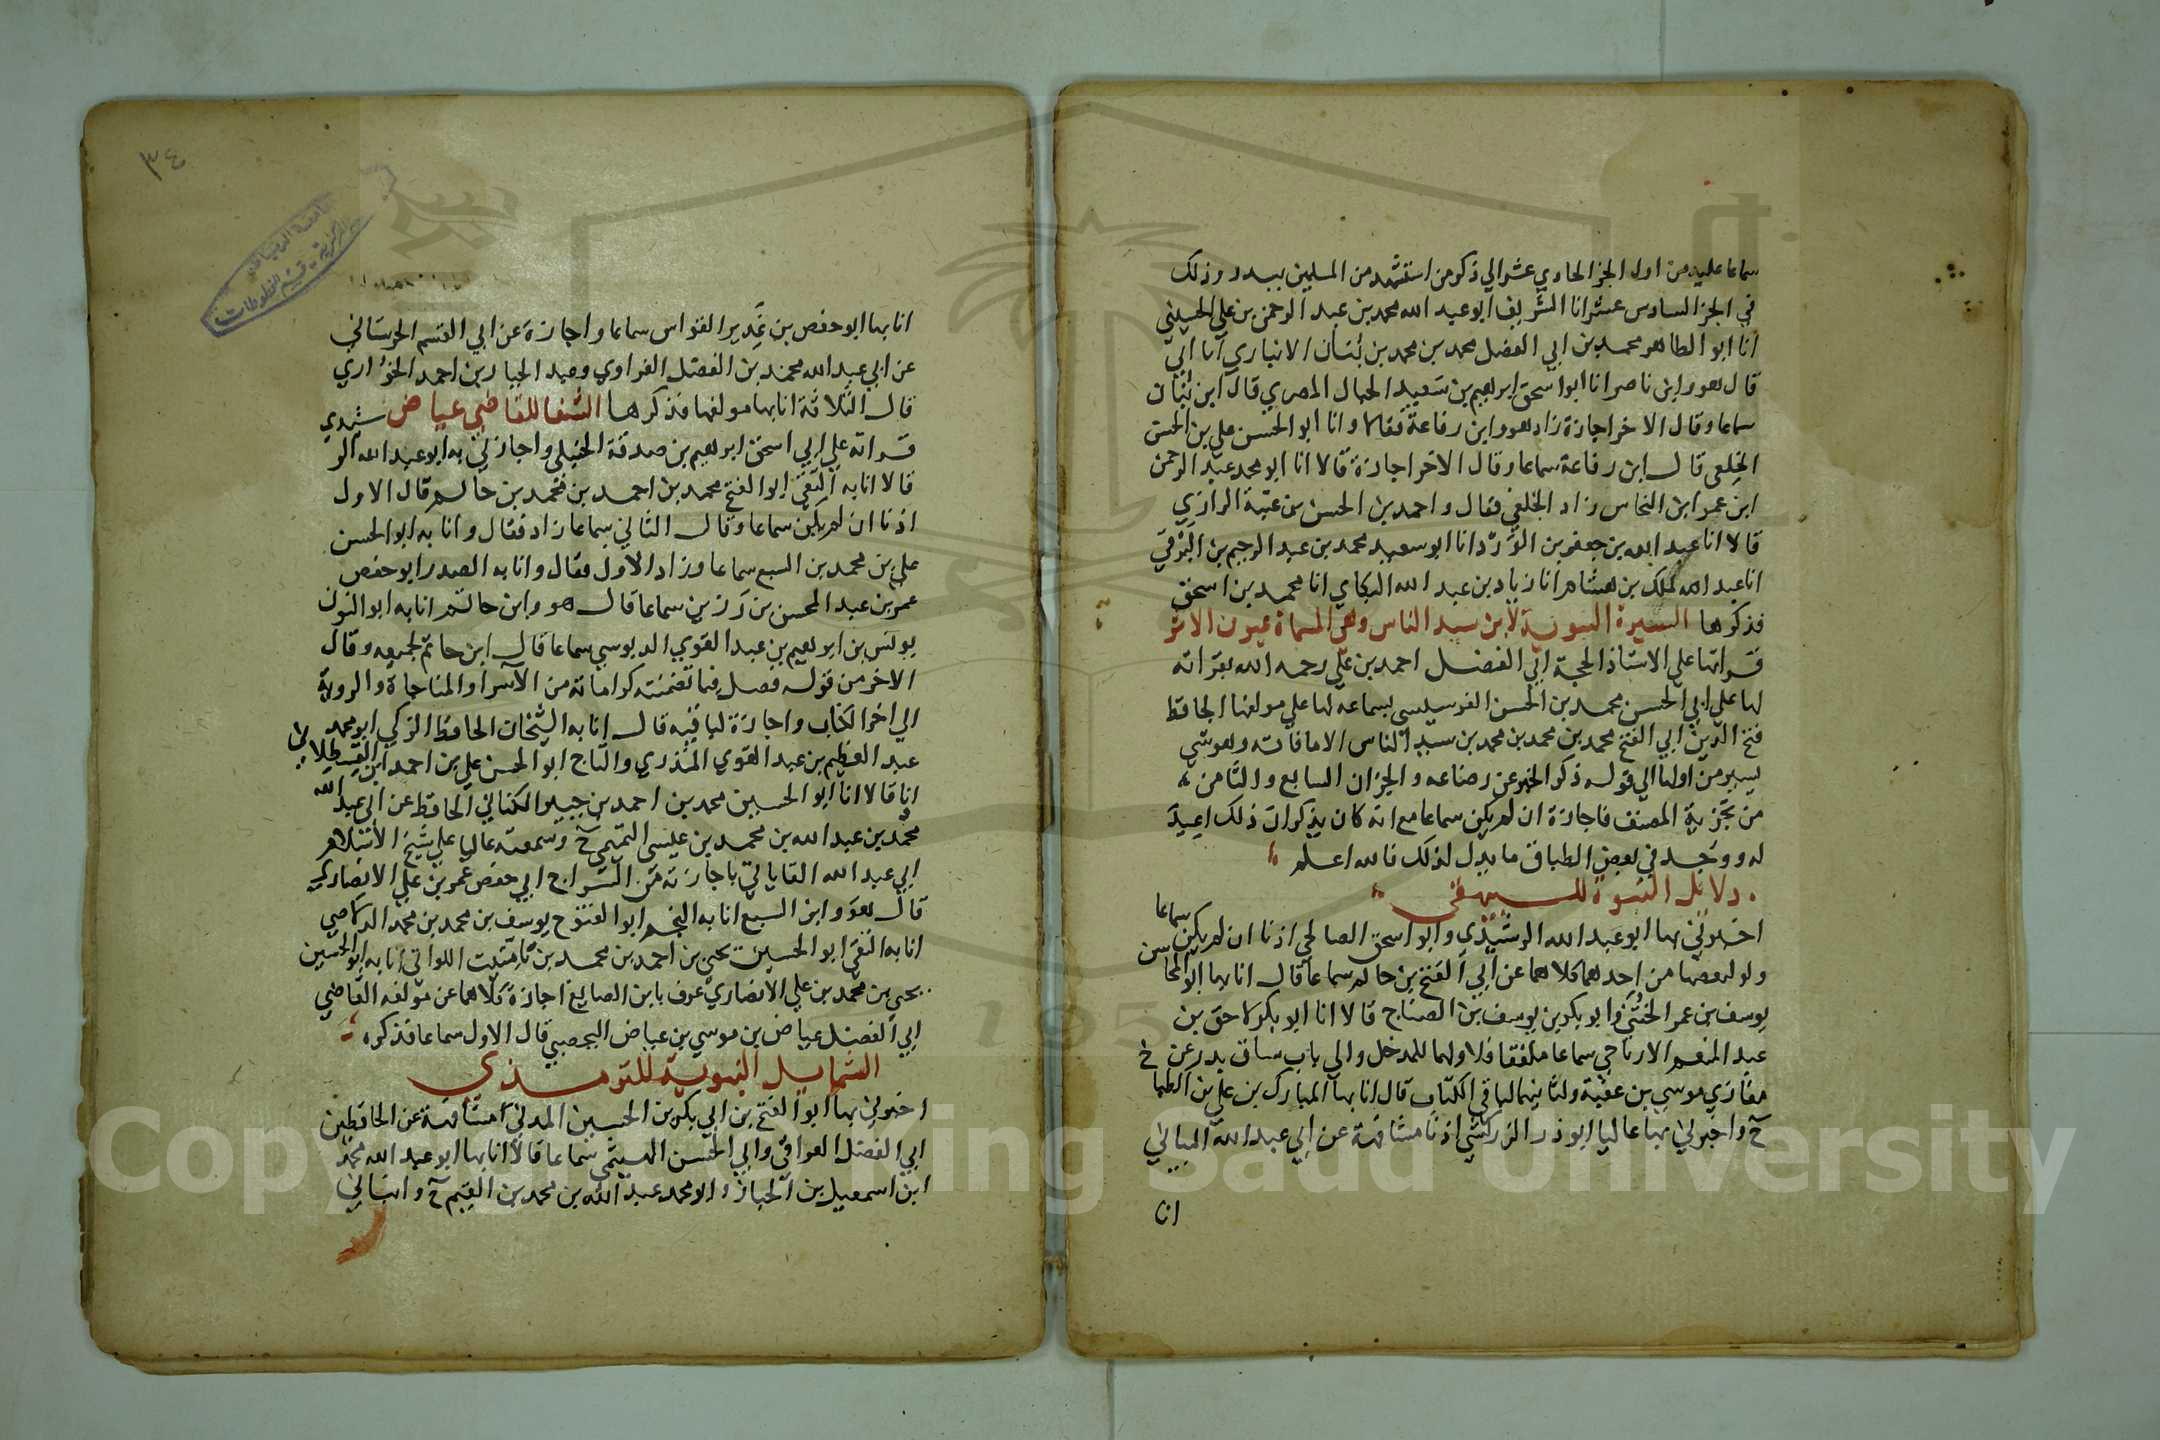 سماعا عليه من اول الجز الحادي عشر الي ذكر من استشهد من المسلمين ببدر وذلك
في الجز السادس عشر انا الشريف ابو عبد الله محمد بن عبد الرحمن بن علي الحسيني
انا ابو الطاهر محمد بن ابي الفضل محمد بن محمد بن بُنَان الانباري انا ابي
قال هو وابن ناصر انا ابو اسحق ابرهيم بن سَعيد الحبال المصري قال ابن بُنَان
سماعا وقال الاخر اجازة زاد هو وابن رفاعة فقالا وانا ابو الحسن علي بن الحسن
الخِلَعي قال ابن رفاعة سماعا وقال الاخر اجازة قالا انا ابو محمد عبد الرحمن
ابن عمر ابن النحاس زاد الخلعي فقال واحمد بن الحسن بن عتبة الرازي
قالا انا عبد الله بن جعفر بن الوَرْد انا ابو سعيد محمد بن عبد الرحيم بن البَرْقي
انا عبد الملك بن هشام انا زياد بن عبد الله البكاي انا محمد بن اسحق
فذكرها السيرة النبوية لابن سيد الناس وهي المسماة عيون الاثر
قراتها علي الاستاذ الحجة ابي الفضل احمد بن علي رحمه الله بقراته
لها علي ابي الحسن محمد بن الحسن الفرسيسي بسماعه لها علي مولفها الحافظ
فتح الدين ابي الفتح محمد بن محمد بن محمد بن سيد الناس الا ما فاته وهو شي
يسير من اولها الي قوله ذكر الخبر عن رضاعه والجزان السابع والثامن
من تجزية المصنف فاجازة ان لم يكن سماعا مع انه كان يذكر ان ذلك اعيد
له ووجد في بعض الطباق ما يدل لذلك فالله اعلم
دلائل النبوة للبيهقي
اخبرني بها ابو عبد الله الرشيدي وابو اسحق الصالحي اذنا ان لم يكن سماعا
ولو لبعضها من احدهما كلاهما عن ابي الفتح بن حاتم سماعا قال انا بها ابو المحاسن
يوسف بن عمر الخُتَني وابو بكر بن يوسف بن الصناج قالا انا ابو بكر لاحق بن
عبد المنعم الارتاحي سماعا ملفقا فلاولهما للمدخل والي باب سياق بدر عن
مغازي موسي بن عقبة ولثانيهما لباقي الكتاب قال انا بها المبارك بن علي بن الطباخ
ح واخبرني بها عاليا ابو ذر الزركشي اذنا مشافهة عن ابي عبد الله البياني
انا
٣٤
انا بها ابو حفص بن غَدير القواس سماعا واجازة عن ابي القسم الحرستاني
عن ابي عبد الله محمد بن الفضل الفراوي وعبد الجبار بن احمد الخواري
قال الثلاثة انا بها مولفها فذكرها الشفا للقاضي عياض
قراته علي ابي اسحق ابرهيم بن صدقة الحنبلي واجازني به ابو عبد الله الرشيدي
قالا انا به التقي ابو الفتح محمد بن احمد بن محمد بن حاتم قال الاول
اذنا ان لم يكن سماعا وقال الثاني سماعا زاد فقال وانا به ابو الحسن
علي بن محمد بن السبع سماعا وزاد الاول فقال وانا به الصدر ابو حفص
عمر بن عبد المحسن بن رَزين سماعا قال هو وابن حاتم انا به ابو النون
يونس بن ابرهيم بن عبد القوي الدبوسي سماعا قال ابن حاتم لجميعه وقال
الاخر من قوله فصل فيما تضمنته كراماته من الاسرا والمناجاة والروية
الي اخر الكتاب واجازة لباقيه قال انا به الشيخان الحافظ الزكي ابو محمد
عبد العظيم بن عبد القوي المنذري والتاج ابو الحسن علي بن احمد ابن القسطلاني
قالا انا ابو الحسين محمد بن احمد بن جبير الكناني الحافظ عن ابي عبد الله
محمد بن عبد الله بن محمد بن عيسي التميمي ح وسمعته عاليا علي شيخ الاسلام
ابي عبد الله القاياتي باجازته من السراج ابي حفص عمر بن علي الانصاري
قال هو وابن السبع انا به النجم ابو الفتوح يوسف بن محمد بن محمد الدلاصي
انا به التقي ابو الحسين يحيي بن احمد بن محمد بن تامتيت اللواتي انا به ابو الحسين
يحيي بن محمد بن علي الانصاري عرف بابن الصايغ اجازة كلاهما عن مولفه القاضي
ابي الفضل عياض بن موسي بن عياض اليحصبي قال الاول سماعا فذكره
الشمايل النبوية للترمذي
اخبرني بها ابو الفتح بن ابي بكر بن الحسين المدني مشافهة عن الحافظين
ابي الفضل العراقي وابي الحسن الهيثمي سماعا قالا انا بها ابو عبد الله محمد
ابن اسمعيل بن الخباز وابو محمد عبد الله بن محمد بن القيم ح وانباني
Copyright © King Saud University